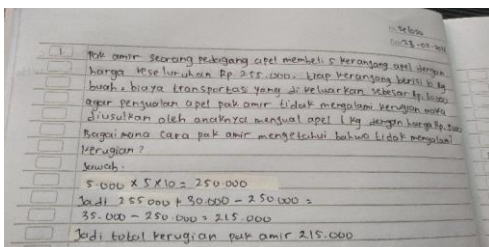 Selasa
28-02-
1 Pak amir seorang pedagang apel membeli 5 keranjang apel dengan
harga keseluruhan Rp. 255.000. tiap keranjang berisi 10 kg
buah. biaya transportasi yang di keluarkan sebesar Rp.
agar penjualan apel pak amir tidak mengalami kerugian maka
diusulkan oleh anaknya menjual apel 1 kg dengan harga Rp.
Bagaimana cara pak amir mengetahui bahwa tidak mengalami
kerugian?
Jawab:
5.000 × 5 × 10 = 250.000
Jadi 255 000 + 30.000 - 250 000 =
35.000 - 250.000 = 215.000
Jadi total kerugian pak amir 215.000